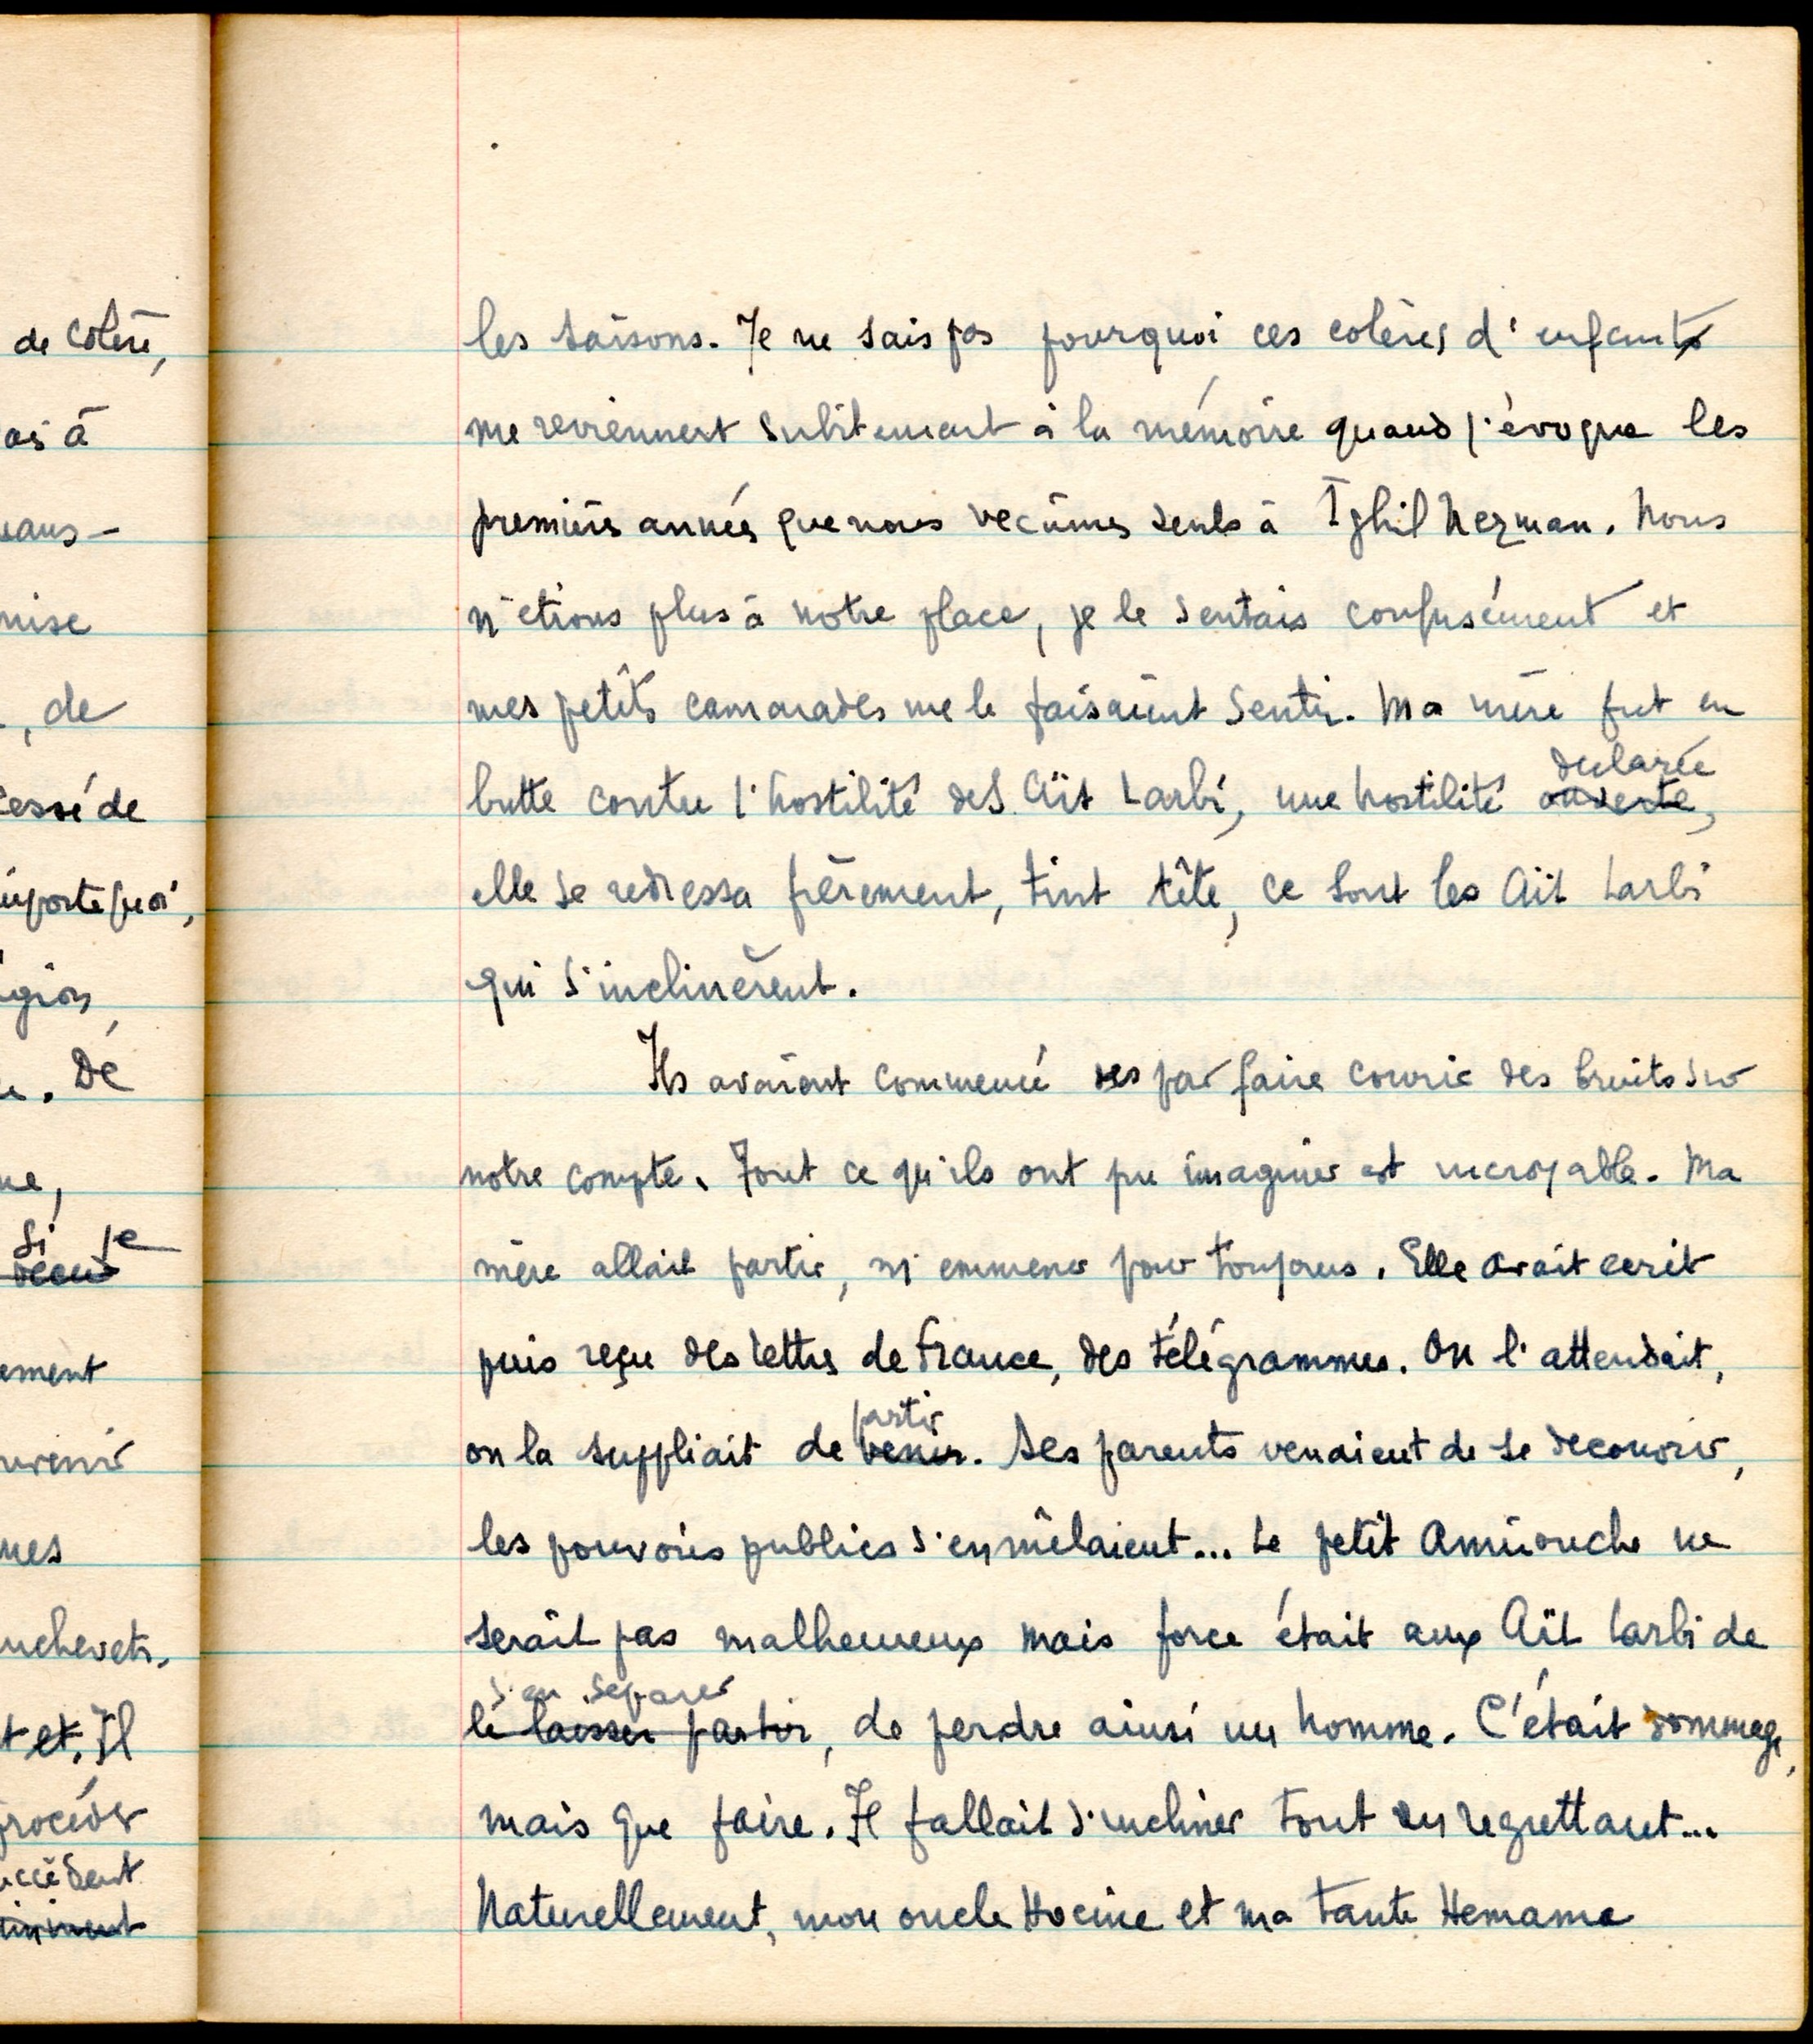 de colère,
as à
eaus-
mise
, de
cessé de
importe quoi,
égion,
. De
me,
Si je
ement
uvenir
mes
nchevetr.
t et. Il
procéder
uccèdent
les saisons. Je ne sais pas pourquoi ces colères d'enfants
me reviennent subitement à la mémoire quand j'évoque les
premières années que nous vecûmes seuls à Ighil Nezman. Nous
n'etions plus à notre place, je le sentais confusément et
mes petits camarades me le faisaient sentir. Ma mère fut en
declarée
butte contre l'hostilité des Aït Larbi, une hostilité ouverte,
elle se redressa fièrement, tint tête, ce sont les Aït Larbi
qui s'inclinèrent.
Ils avaient commencé par faire courir des bruits sur
notre compte. Tout ce qu'ils ont pu imaginer est incroyable. Ma
mère allait partir, m'emmener pour toujours. Elle avait ecrit
puis reçu des lettres de France, des télégrammes. On l'attendait,
partir
on la suppliait de venir. Ses parents venaient de se decouvrir,
les pouvoirs publics s'en mêlaient... Le petit Amirouche ne
serait pas malheureux mais force était aux Aït Larbi de
s'en séparer
le laisser partir, de perdre ainsi un homme. C'était dommage,
mais que faire. Il fallait s'incliner tout en regrettant...
Naturellement, mon oncle Hocine et ma tante Hemama